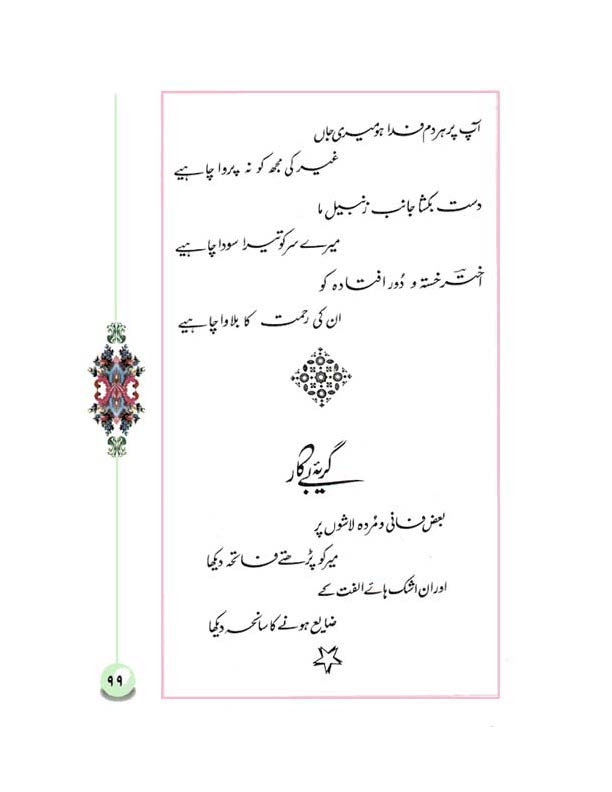 آپ پر ہر دم فدا ہو میری جاں
غیر کی مجھ کو نہ پروا چاہیے
دست بکشا جانب زنبیل ما
میرے سر کو تیرا سودا چاہیے
اخترؔ خستہ و دُور افتادہ کو
ان کی رحمت کا بلاوا چاہیے
گریۂ بے کار
بعض فانی و مُردہ لاشوں پر
میر کو پڑھتے فاتحہ دیکھا
اور ان اشک ہائے الفت کے
ضایع ہونے کا سانحہ دیکھا
۹۹